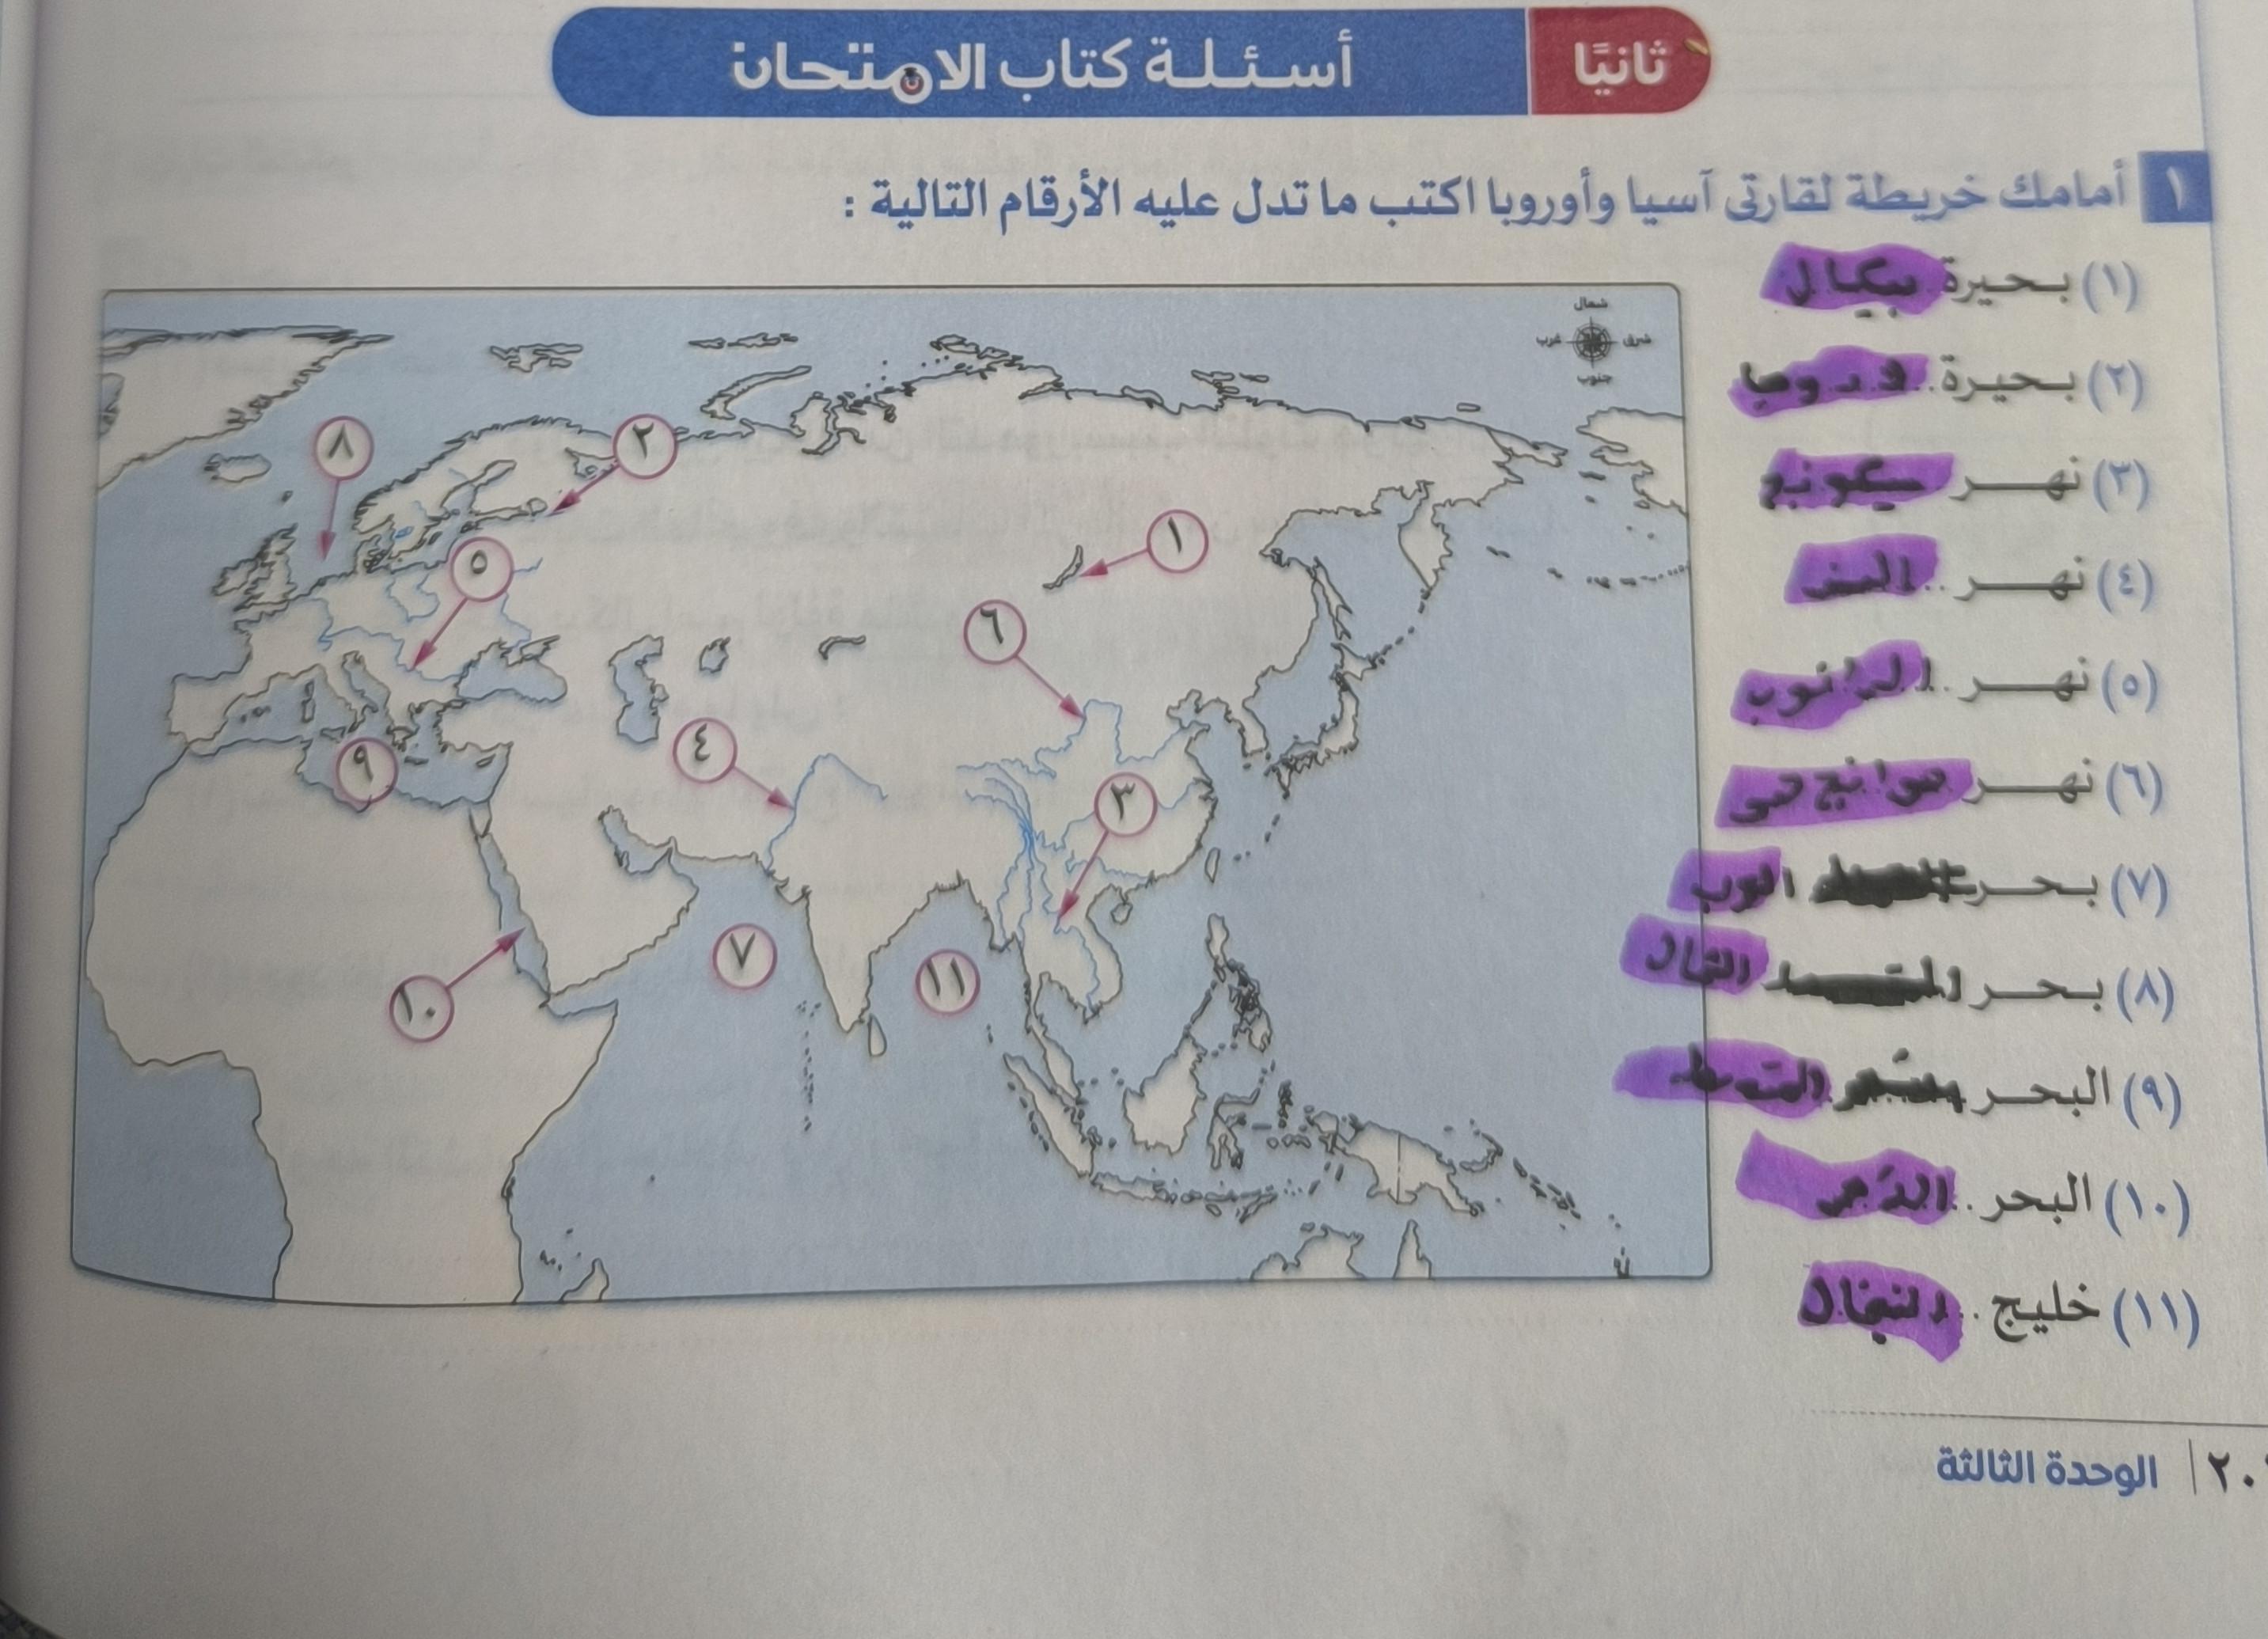 ثانيًا أسئلة كتاب الامتحان
١ أمامك خريطة لقارتى آسيا وأوروبا اكتب ما تدل عليه الأرقام التالية :
(١) بحيرة بيكال
(٢) بحيرة
(٣) نهر
(٤) نهر
(٥) نهر الدانوب
(٦) نهر هوانج هى
(٧) بحر العرب
(٨) بحر الشمال
(٩) البحر المتوسط
(١٠) البحر
(١١) خليج
شمال
شرق
غرب
جنوب
٨
٢
١
٥
٦
٩
٤
٣
١٠
٧
١١
الوحدة الثالثة